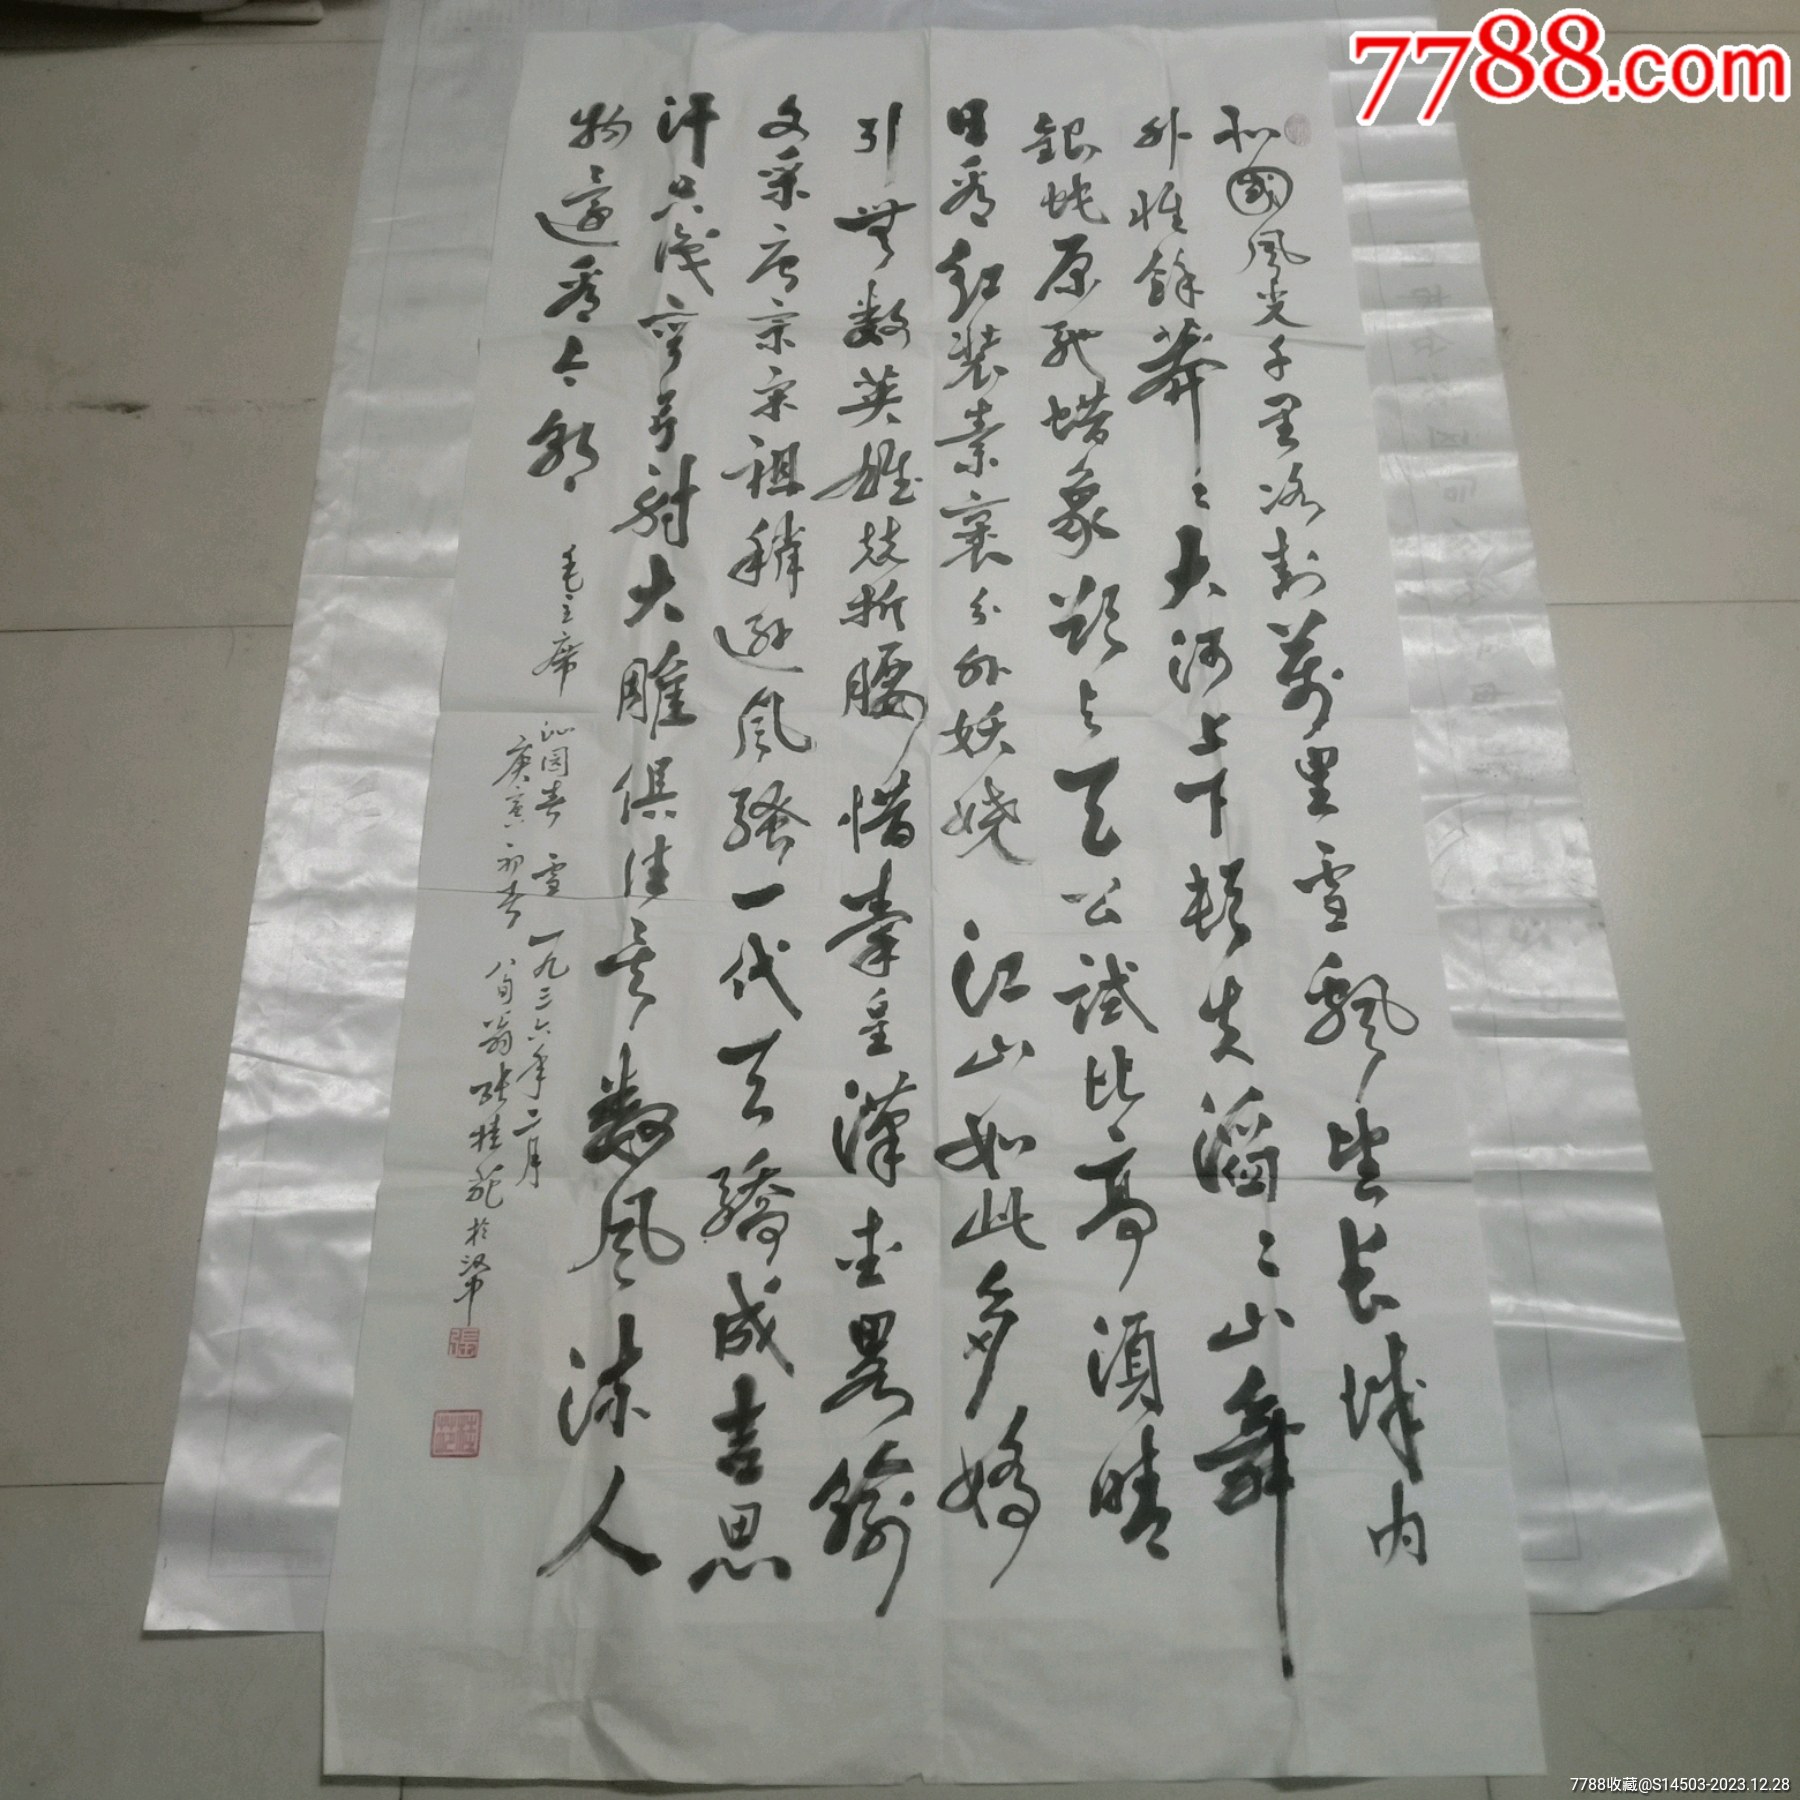 北國风光千里冰封萬里雪飄望长城内
外惟餘莽〻大河上下頓失滔〻山舞
銀蛇原馳蜡象欲与天公試比高須晴
日看红装素裹分外妖嬈 江山如此多嬌
引無数英雄競折腰惜秦皇漢武畧輸
文采唐宗宋祖稍遜風騷一代天驕成吉思
汗只識彎弓射大雕俱往矣数风流人
物還看今朝 毛主席 沁园春 雪 一九三六年二月
庚寅初春 八旬翁張桂 於汉中
7788.com
7788收藏@S14503-2023.12.28